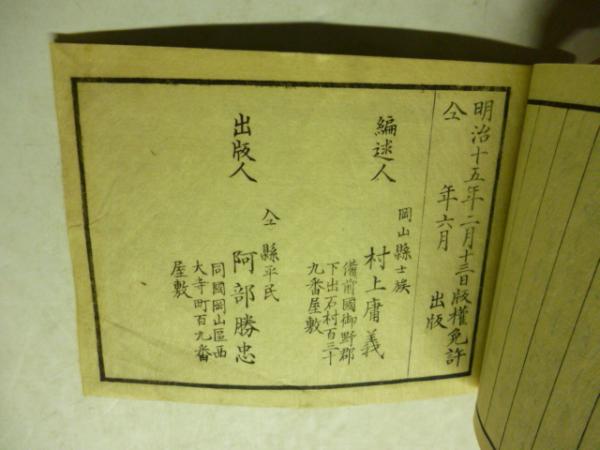 明治十五年二月十三日版權免許
仝　年六月　出版
編述人
岡山縣士族
村上庸義
備前國御野郡
下出石村百三十
九番屋敷
出版人
仝縣平民
阿部勝忠
同國岡山區西
大寺町百九番
屋敷